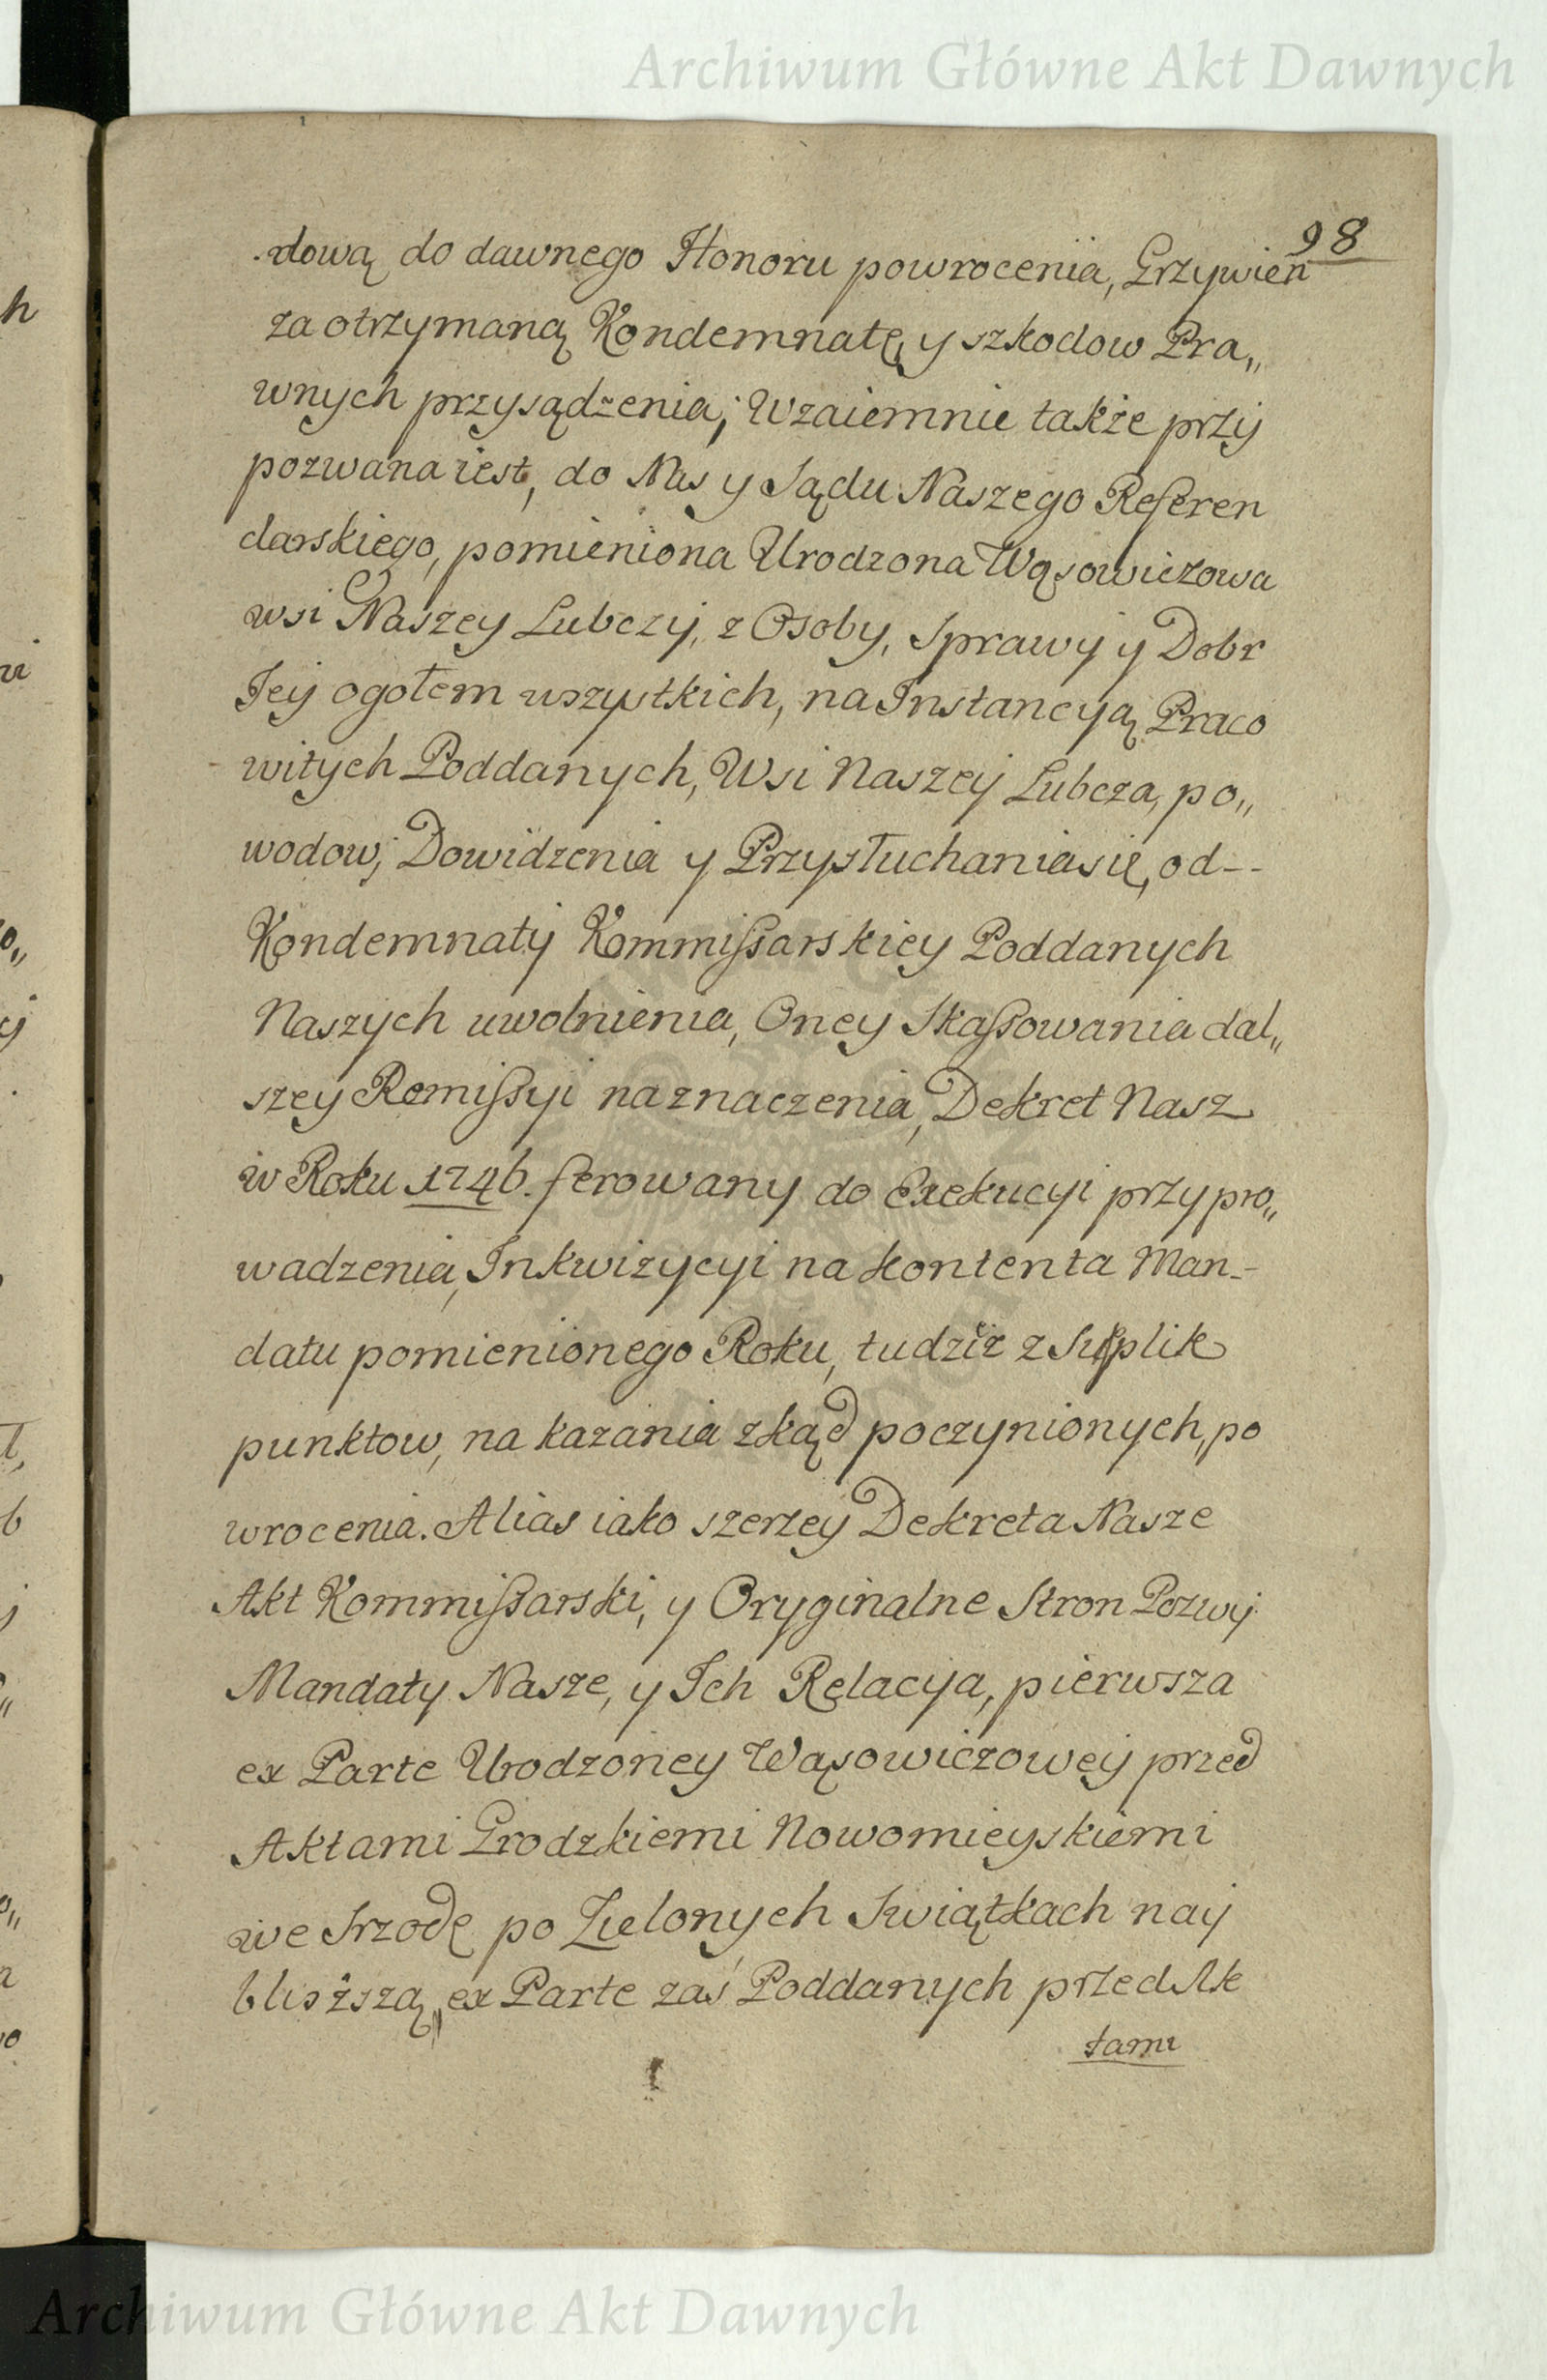 Archiwum Główne Akt Dawnych
98
dową do dawnego Honoru powrocenia, Grzywien
za otrzymaną Kondemnatę, y szkodow Pra„
wnych przysądzenia; Wzaiemnie także przy
pozwana iest, do Nas y Sądu Naszego Referen
darskiego, pomieniona Urodzona Wąsowiczowa
wsi Naszey Lubczy, z Osoby, Sprawy y Dobr
Jey ogołem wszystkich, na Instancyą Praco
witych Poddanych, Wsi Naszey Lubcza, po„
wodow; Dowidzenia y Przysłuchania się, od--
Kondemnaty Kommissarskiey Poddanych
Naszych uwolnienia, Oney Skassowania dal„
szey Remissyi naznaczenia, Dekret Nasz
w Roku 1746. ferowany do Exekucyi przypro„
wadzenia, Inkwizycyi na kontenta Man-
datu pomienionego Roku, tudziż z Suplik
punktow, na kazania zkąd poczynionych, po
wrocenia. Alias iako szerzey Dekreta Nasze
Akt Kommissarski, y Oryginalne Stron Pozwy
Mandaty Nasze, y Ich Relacya, pierwsza
ex Parte Urodzoney Wąsowiczowey przed
Aktami Grodzkiemi Nowomieyskiemi
we Srzodę po Zielonych Swiątkach nay
bliższą, ex Parte zaś Poddanych przed Ak
tami
Archiwum Główne Akt Dawnych